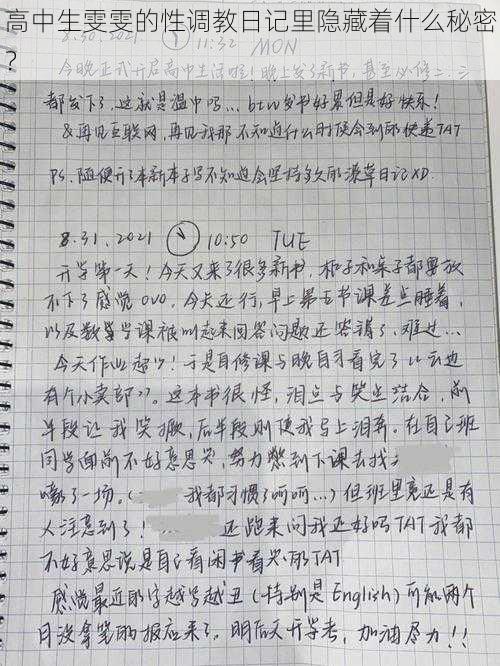 高中生雯雯的性调教日记里隐藏着什么秘密
?
8.30.2021 11:32 MON
今晚正式开启高中生活啦!晚上发了新书,甚至必修二、三
都发下了,这就是温中吗...btw发书好累但是好快乐!
&再见互联网,再见我那不知道什么时候会到的快递TAT
PS.随便开了本新本子写不知道会坚持多久的潦草日记XD.
8.31.2021 10:50 TUE
开学第一天!今天又来了很多新书,柜子和桌子都要放
不下了感觉OVO.今天还行,早上第五节课差点睡着,
以及数学课被叫起来回答问题还答错了,难过...
今天作业超少!于是自修课与晚自习看完了《云边
有个小卖部》。这本书很怪,泪点与笑点结合,前
半段让我笑撅,后半段则使我马上泪奔。在自己班
同学面前不好意思哭,努力憋到下课去找
嚎了一场。( 我都习惯了呵呵...)但班里竟还是有
人注意到了! 还跑来问我还好吗TAT我都
不好意思说是自己看闲书看哭的TAT
感觉最近的字越写越丑(特别是English)可能两个
月没拿笔的报应来了。明后天开学考,加油尽力!!